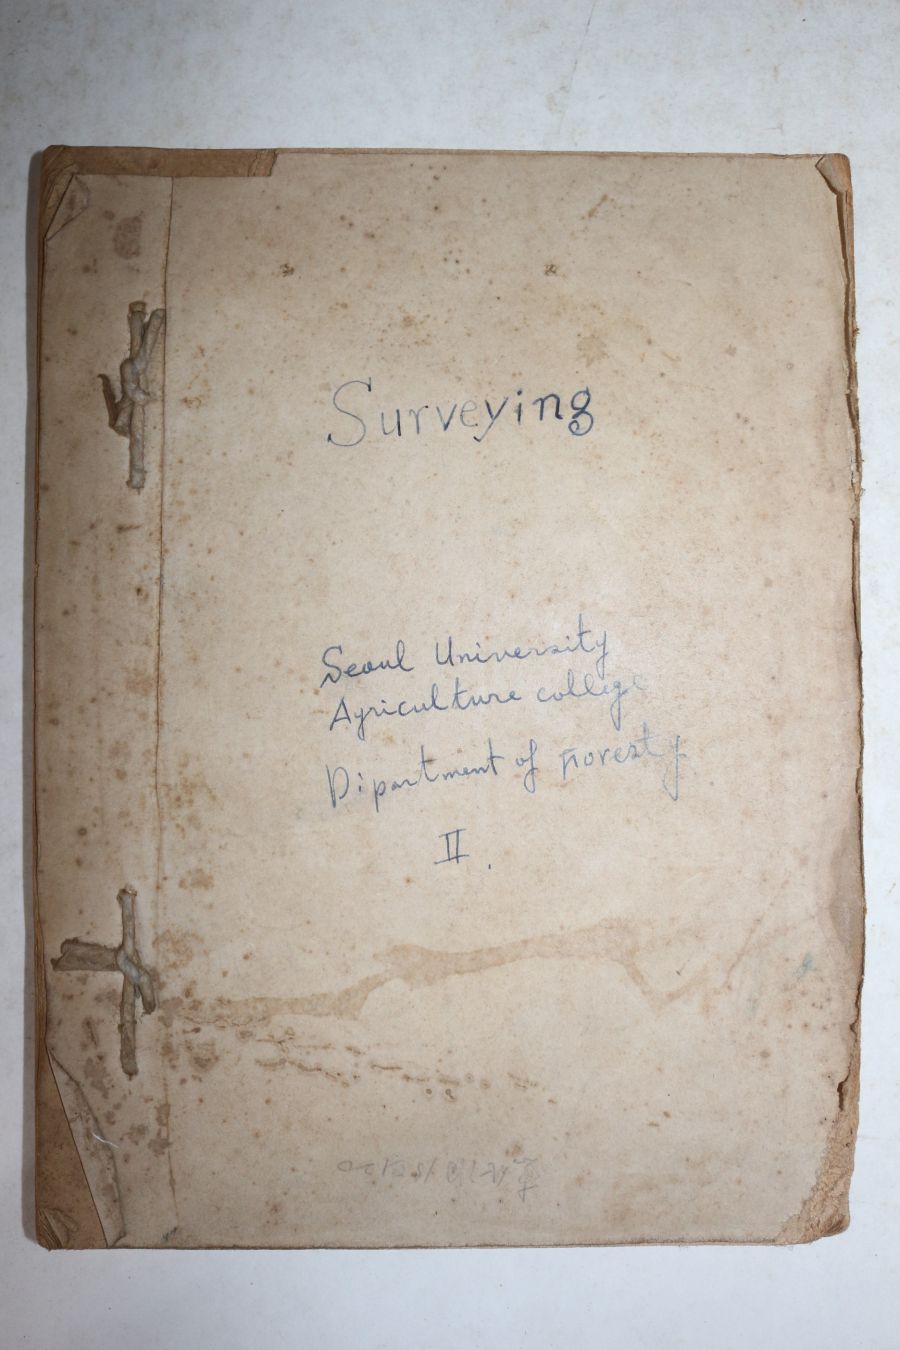 Surveying
Seoul University
Agriculture college
Dipartment of Foresty
II.